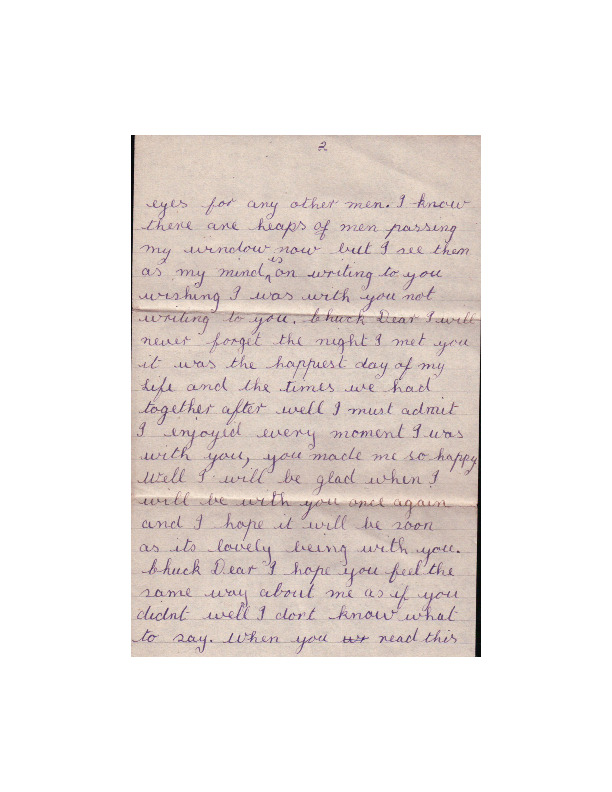 2
eyes for any other men. I know
there are heaps of men passing
my window now but I see them
as my mind is on writing to you
wishing I was with you not
writing to you. Chuck Dear I will
never forget the night I met you
it was the happiest day of my
life and the times we had
together after well I must admit
I enjoyed every moment I was
with you, you made me so happy
Well I will be glad when I
will be with you once again
and I hope it will be soon
as its lovely being with you.
Chuck Dear I hope you feel the
same way about me as if you
didnt well I dont know what
to say. When you read this